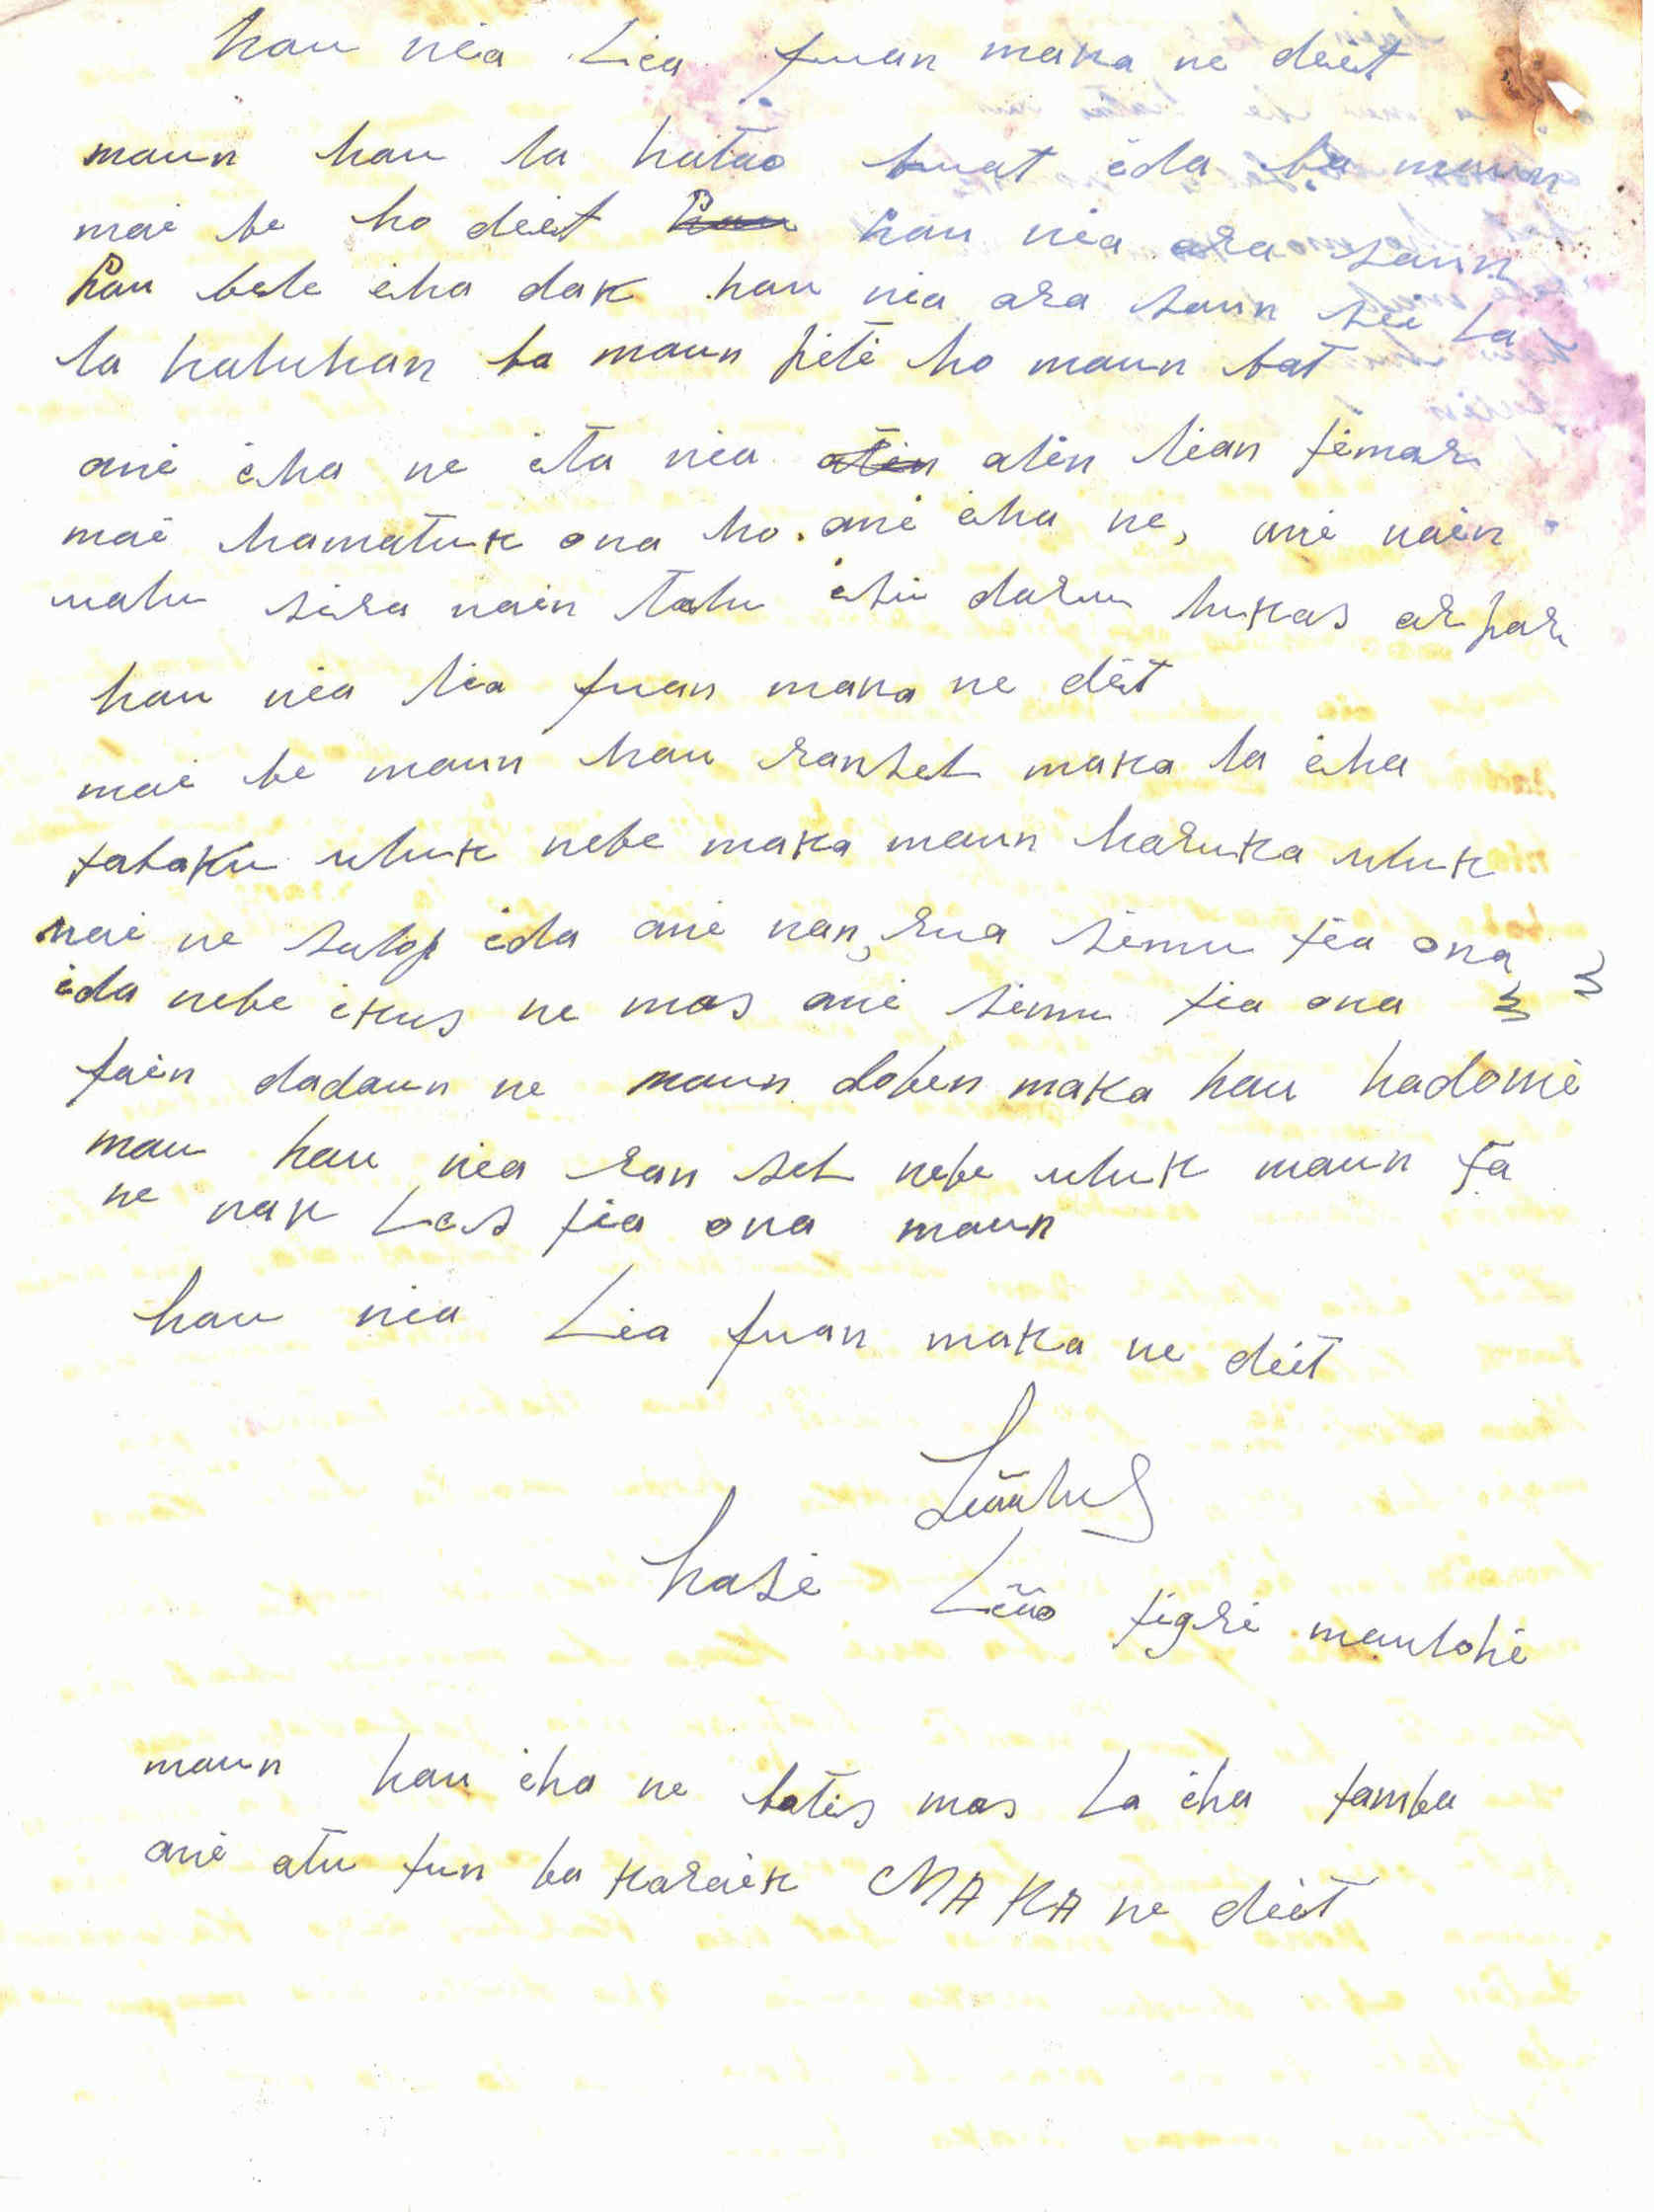 hau nia Lia fuan maka ne deit
maun hau la hatao buat ida ba maun
mai be ho deit hau nia ara saun
hau bele iha dak hau nia ara saun sei La
la haluhan ba maun piti ho maun bat
ami iha ne ita nia alin lian timar
mai hamatuk ona ho. ami iha ne, ami nain
ualu sira nain tolu isu daru lukas arpar
hau nia lia fuan maka ne deit
mai be maun hau ransel maka la iha
tabaku uluk nebe maka maun haruka uluk
nai ne sulop ida ami nan, rua simu tia ona
ida nebe ikus ne mas ami simu tia ona
fain dadaun ne maun doben maka hau hadomi
mau hau nia ran sel nebe uluk maun fa
ne nak Les tia ona maun
hau nia Lia fuan maka ne deit
hasi Liño tigri maulohi
maun hau iha ne batis mas La iha tamba
ami atu tun ba karaik MAKA ne deit